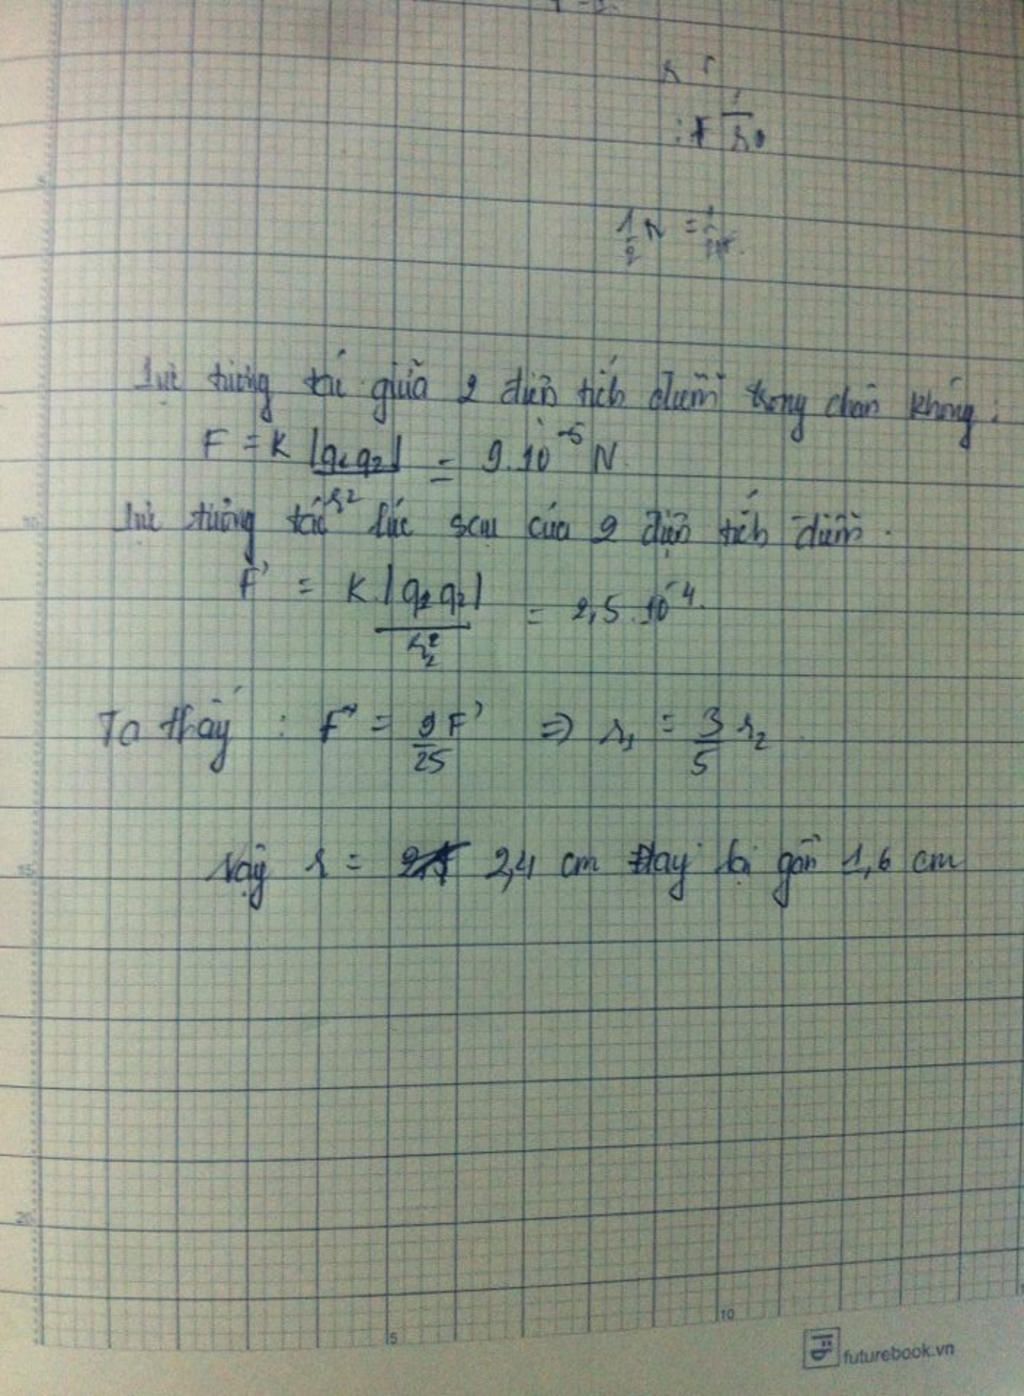 1/2 N =
Lực tương tác giữa 2 điện tích điểm trong chân không:
F = K |q1 q2| / r2 = 9.10^-5 N
Lực tương tác lúc sau của 2 điện tích điểm.
F' = K.|q2 q2| / r2^2 = 2,5.10^-4.
Ta thấy : F = 9/25 F' => r1 = 3/5 r2
Vậy r = 2,4 cm Hay lại gần 1,6 cm
5
10
10
15
20
futurebook.vn